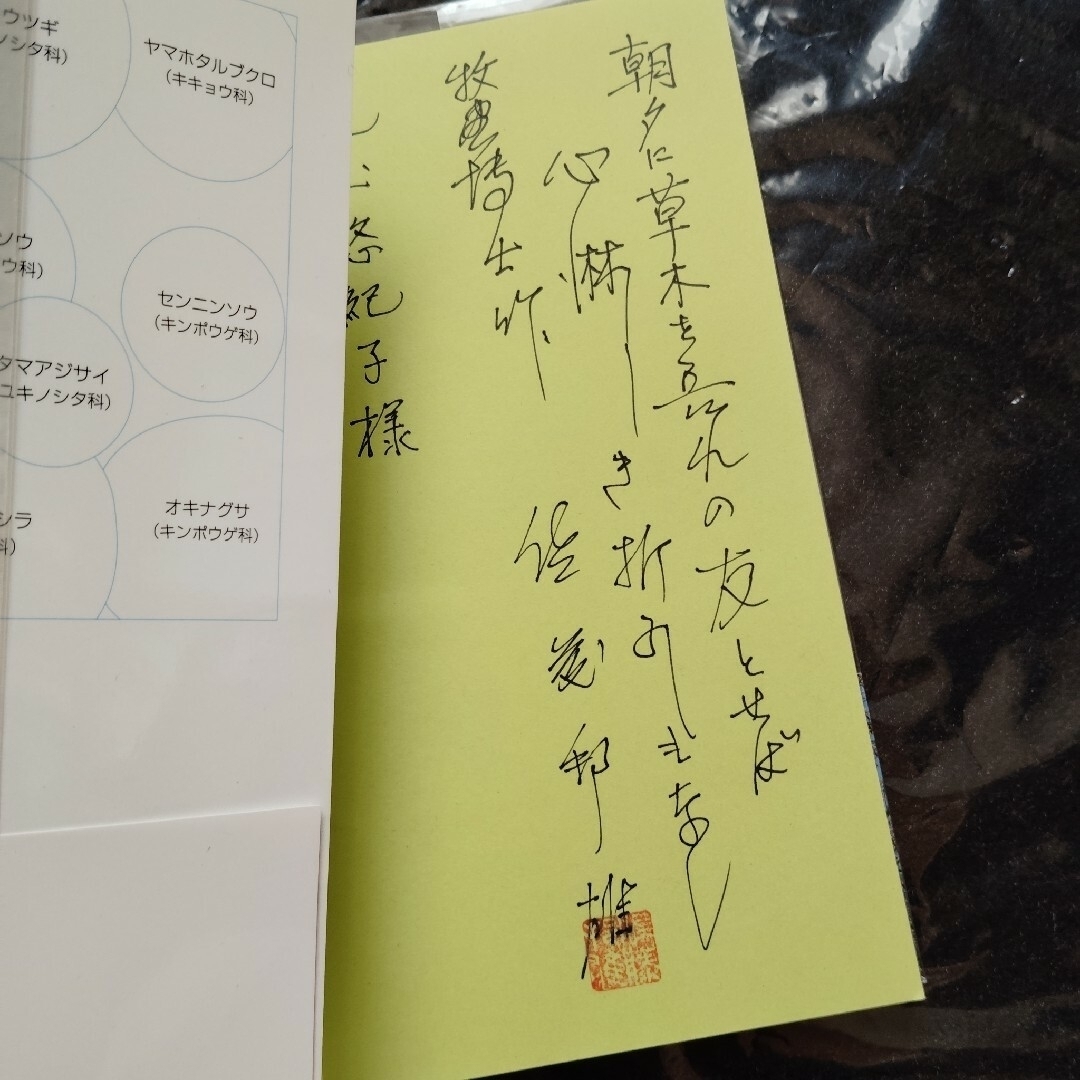 ウツギ
ノシタ科)
ヤマホタルブクロ
(キキョウ科)
ソウ
ウ科)
センニンソウ
(キンポウゲ科)
タマアジサイ
ユキノシタ科)
シラ
科)
オキナグサ
(キンポウゲ科)
朝夕に草木を吾れの友とせば
心淋しき折ふしもなし
牧野博士作
邦雄
紀子様